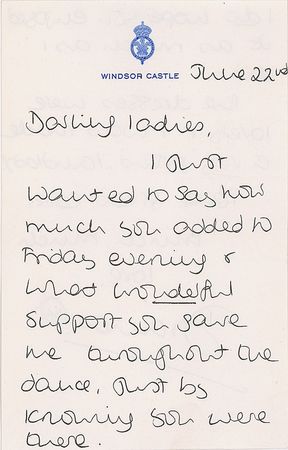 WINDSOR CASTLE
June 22nd
Darling ladies,
I just
wanted to say how
much you added to
Friday evening &
what wonderful
support you gave
me throughout the
dance, just by
knowing you were
there.